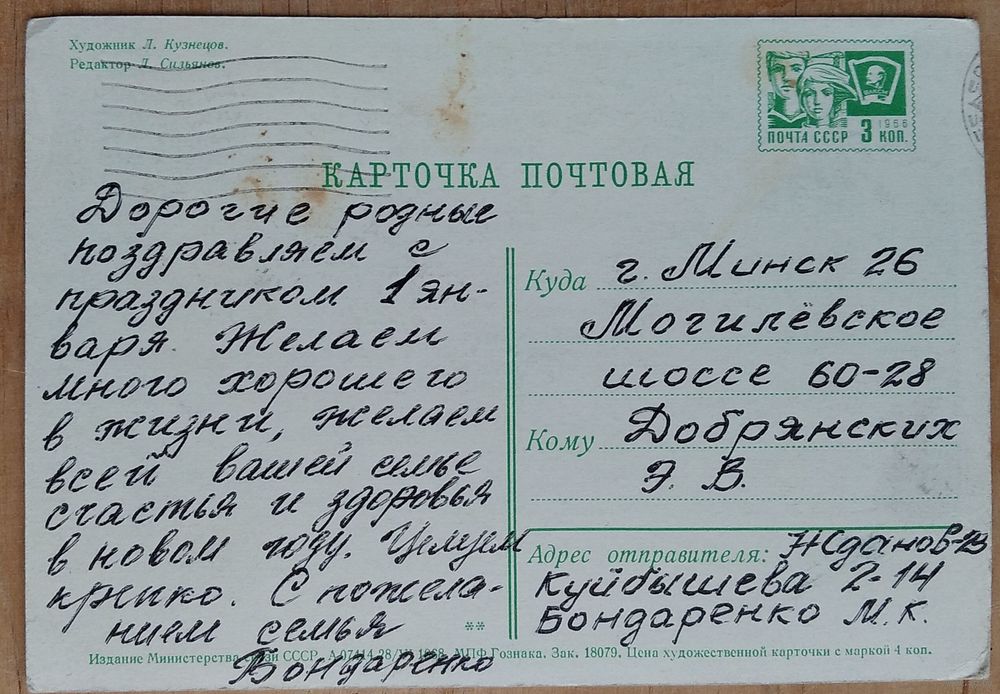 Художник Л. Кузнецов.
Редактор Л. Сильянов.
ПОЧТА СССР 3 КОП.
1966
ВЛКСМ
КАРТОЧКА ПОЧТОВАЯ
Дорогие родные
поздравляем с
праздником 1 ян-
варя. Желаем
много хорошего
в жизни, желаем
всей вашей семье
счастья и здоровья
в новом году. Целуем
крепко. С пожела-
нием семья
Бондаренко
Куда г. Минск 26
Могилёвское
шоссе 60-28
Кому Добрянских
Э. В.
Адрес отправителя: Жданов-13
Куйбышева 2-14
Бондаренко М. К.
**
Издание Министерства связи СССР. А-07414 28/ 1968. МПФ Гознака. Зак. 18079. Цена художественной карточки с маркой 4 коп.